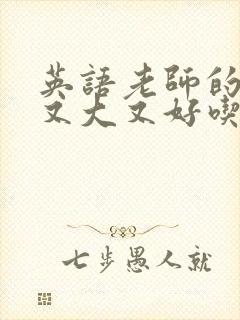 英語老師的
又大又好喫
七步愚人就